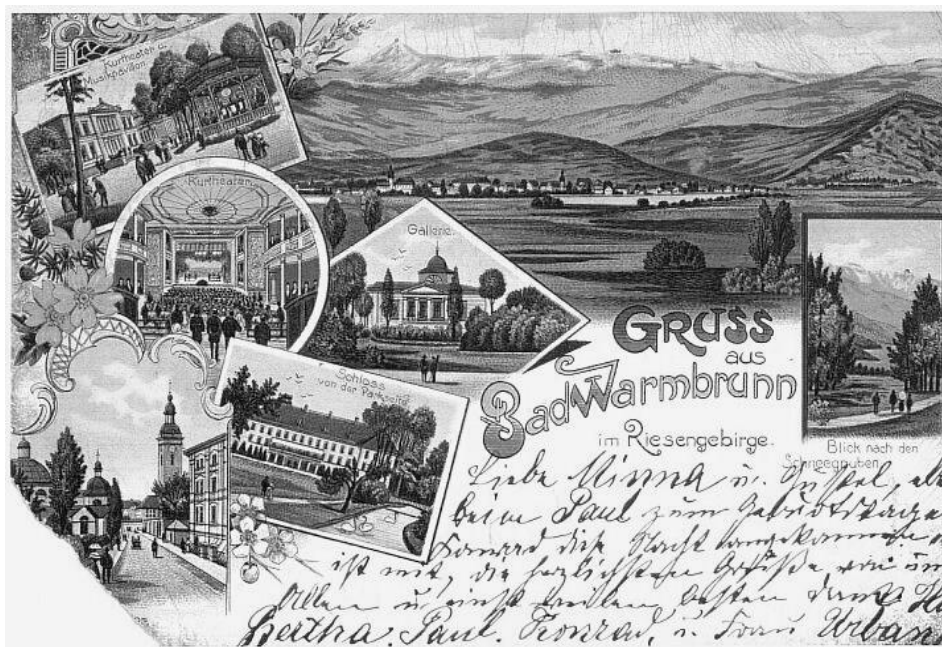 Kurtheater u.
Musikpavillon.
Kurtheater.
Gallerie.
Schloss
von der Parkseite.
GRUSS
aus
Bad Warmbrunn
im Riesengebirge.
Blick nach den
Schneegruben.
Liebe Minna u.
beim Paul zum Geburtstage
Konrad die Nacht angekommen
ist mit, die herzlichsten Grüße von
Allen u. besten Dank
Bertha. Paul. Konrad. u. Frau Urban